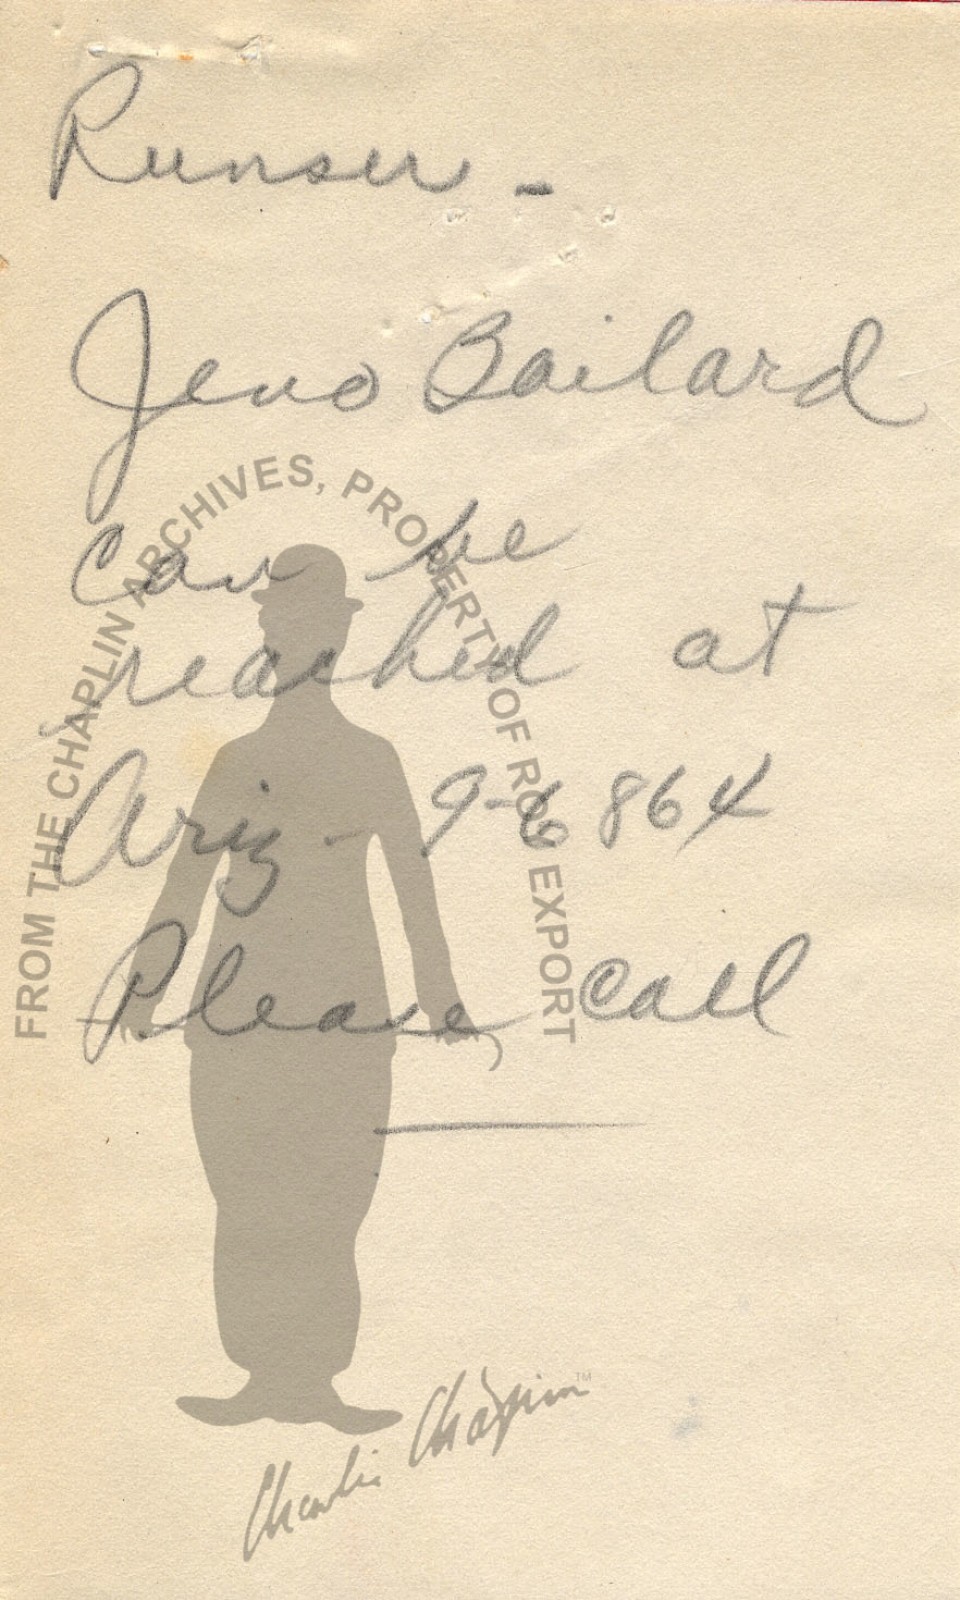 Runser -
Jeno Bailard
Can be
reached at
Ariz - 9-6864
Please Call
FROM THE CHAPLIN ARCHIVES, PROPERTY OF ROY EXPORT
Charlie Chaplin™